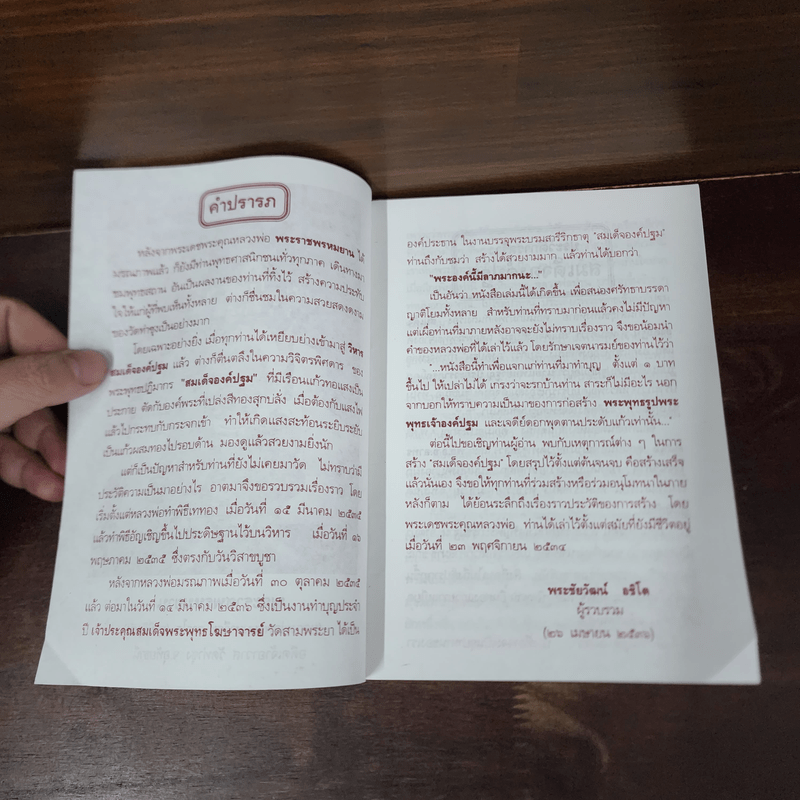 คำปรารภ
หลังจากพระเดชพระคุณหลวงพ่อ พระราชพรหมยาน ได้
มรณภาพแล้ว ก็ยังมีท่านพุทธศาสนิกชนทั่วทุกภาค เดินทางมา
ชมพุทธสถาน อันเป็นผลงานของท่านที่ทิ้งไว้ สร้างความประทับ
ใจให้แก่ผู้ที่พบเห็นทั้งหลาย ต่างก็ชื่นชมในความสวยสดงดงาม
ของวัดท่าซุงเป็นอย่างมาก
โดยเฉพาะอย่างยิ่ง เมื่อทุกท่านได้เหยียบย่างเข้ามาสู่ วิหาร
สมเด็จองค์ปฐม แล้ว ต่างก็ตื่นตลึงในความวิจิตรพิศดาร ของ
พระพุทธปฏิมากร "สมเด็จองค์ปฐม" ที่มีเรือนแก้วทอแสงเป็น
ประกาย ตัดกับองค์พระที่เปล่งสีทองสุกปลั่ง เมื่อต้องกับแสงไฟ
แล้วไปกระทบกับกระจกเข้า ทำให้เกิดแสงสะท้อนระยิบระยับ
เป็นแก้วผสมทองไปรอบด้าน มองดูแล้วสวยงามยิ่งนัก
แต่ก็เป็นปัญหาสำหรับท่านที่ยังไม่เคยมาวัด ไม่ทราบว่ามี
ประวัติความเป็นมาอย่างไร อาตมาจึงขอรวบรวมเรื่องราว โดย
เริ่มตั้งแต่หลวงพ่อทำพิธีเททอง เมื่อวันที่ ๑๕ มีนาคม ๒๕๓๕
แล้วทำพิธีอัญเชิญขึ้นไปประดิษฐานไว้บนวิหาร เมื่อวันที่ ๑๖
พฤษภาคม ๒๕๓๕ ซึ่งตรงกับวันวิสาขบูชา
หลังจากหลวงพ่อมรณภาพเมื่อวันที่ ๓๐ ตุลาคม ๒๕๓๕
แล้ว ต่อมาในวันที่ ๑๔ มีนาคม ๒๕๓๖ ซึ่งเป็นงานทำบุญประจำ
ปี เจ้าประคุณสมเด็จพระพุทธโฆษาจารย์ วัดสามพระยา ได้เป็น
องค์ประธาน ในงานบรรจุพระบรมสารีริกธาตุ "สมเด็จองค์ปฐม"
ท่านถึงกับชมว่า สร้างได้สวยงามมาก แล้วท่านได้บอกว่า
"พระองค์นี้มีลาภมากนะ..."
เป็นอันว่า หนังสือเล่มนี้ได้เกิดขึ้น เพื่อสนองศรัทธาบรรดา
ญาติโยมทั้งหลาย สำหรับท่านที่ทราบมาก่อนแล้วคงไม่มีปัญหา
แต่เผื่อท่านที่มาภายหลังอาจจะยังไม่ทราบเรื่องราว จึงขอน้อมนำ
คำของหลวงพ่อที่ได้เล่าไว้แล้ว โดยรักษาเจตนารมย์ของท่านไว้ว่า
"...หนังสือนี้ทำเพื่อแจกแก่ท่านที่มาทำบุญ ตั้งแต่ ๑ บาท
ขึ้นไป ให้เปล่าไม่ได้ เกรงว่าจะรกบ้านท่าน สาระก็ไม่มีอะไร นอก
จากบอกให้ทราบความเป็นมาของการก่อสร้าง พระพุทธรูปพระ
พุทธเจ้าองค์ปฐม และเจดีย์ดอกพุดตานประดับแก้วเท่านั้น..."
ต่อนี้ไปขอเชิญท่านผู้อ่าน พบกับเหตุการณ์ต่าง ๆ ในการ
สร้าง "สมเด็จองค์ปฐม" โดยสรุปไว้ตั้งแต่ต้นจนจบ คือสร้างเสร็จ
แล้วนั่นเอง จึงขอให้ทุกท่านที่ร่วมสร้างหรือร่วมอนุโมทนาในภาย
หลังก็ตาม ได้ย้อนระลึกถึงเรื่องราวประวัติของการสร้าง โดย
พระเดชพระคุณหลวงพ่อ ท่านได้เล่าไว้ตั้งแต่สมัยที่ยังมีชีวิตอยู่
เมื่อวันที่ ๒๓ พฤศจิกายน ๒๕๓๔
พระชัยวัฒน์ อชิโต
ผู้รวบรวม
(๒๖ เมษายน ๒๕๓๖)